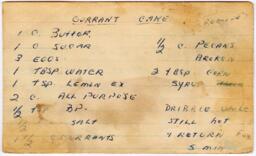 CURRANT CAKE
1 C. BUTTER
1 C. SUGAR
3 EGGS
1 TBSP WATER
1 TSP LEMON EX
2 C. ALL PURPOSE
1/2 TSP BP.
SALT
1 1/2 C CURRANTS
1/2 C. PECANS
BROKEN
2 TBSP CORN
SYRUP
DRIBBLE WHILE
STILL HOT
& RETURN FOR
5 MIN